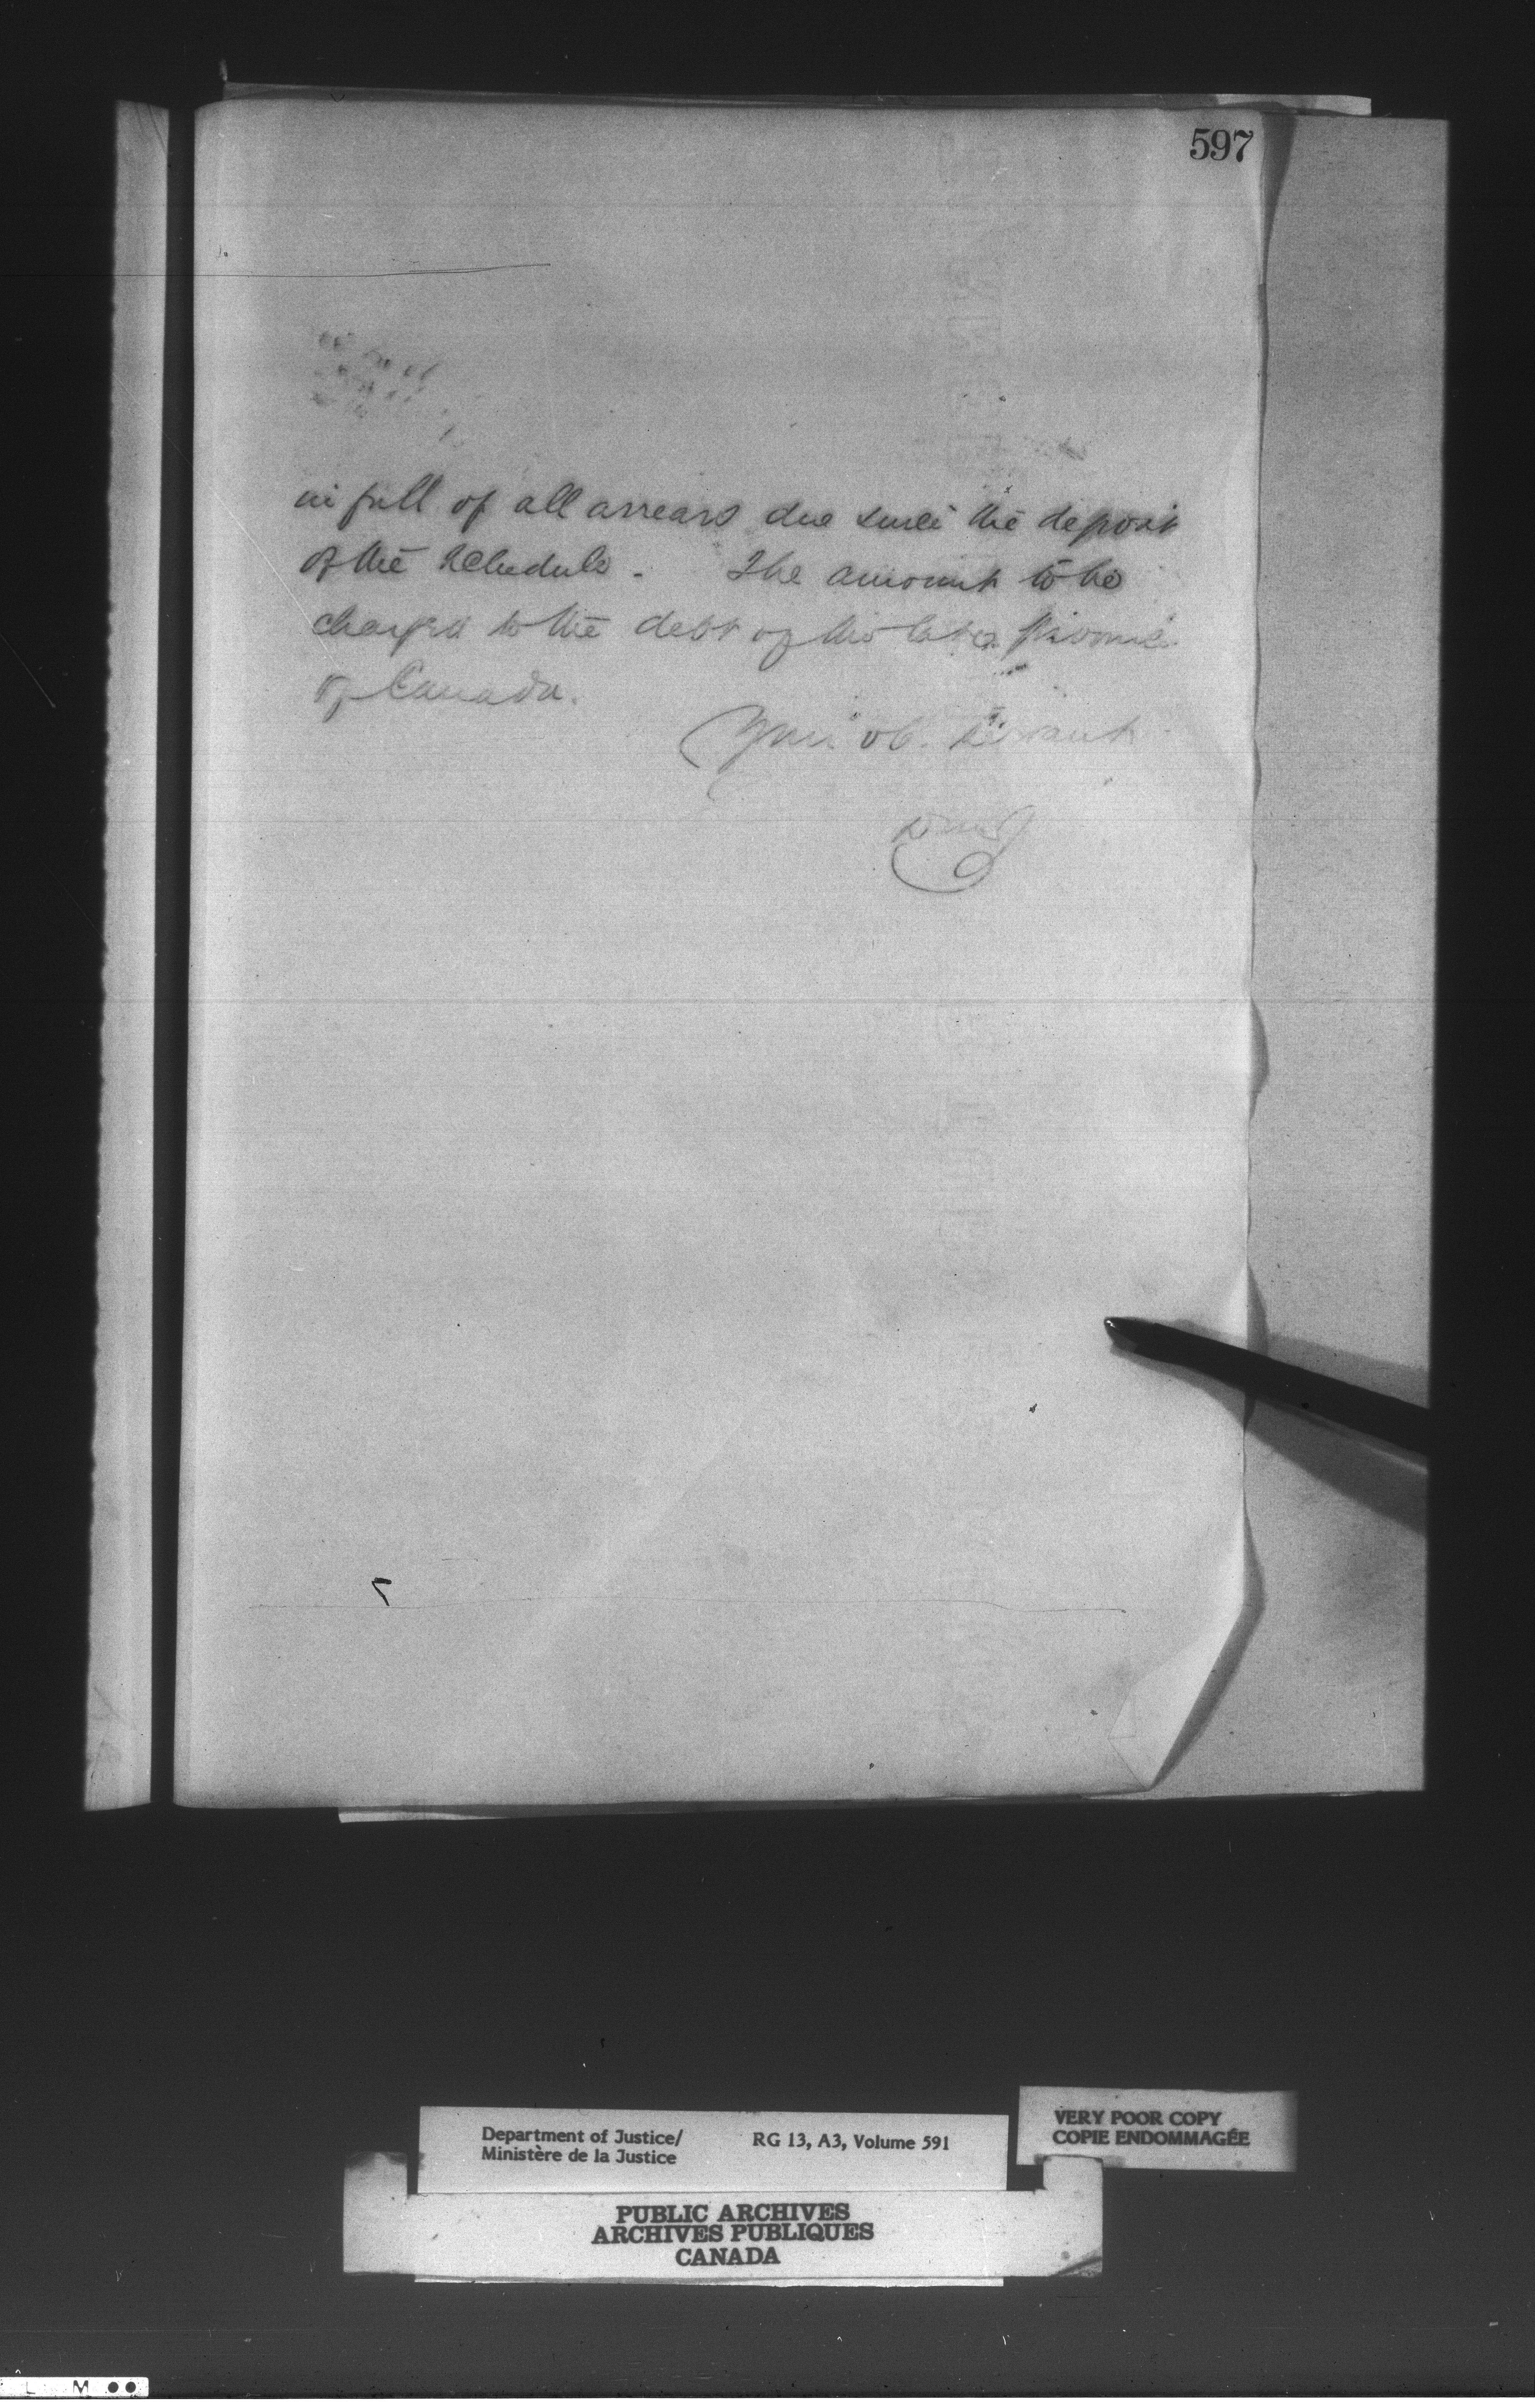 597
in full of all arrears due since the deposit
of the Schedule. The amount to be
charged to the debt of the late Province
of Canada.
Your ob. Servant
VERY POOR COPY
COPIE ENDOMMAGÉE
Department of Justice/
Ministère de la Justice
RG 13, A3, Volume 591
PUBLIC ARCHIVES
ARCHIVES PUBLIQUES
CANADA
L M